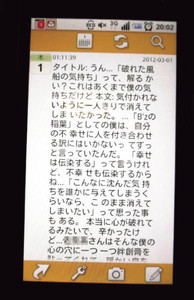 3G 20:02
木 01:11:39 2012-03-01
1 タイトル: うん…「破れた風
船の気持ち」って、解るか
い？これはあくまで僕の気
持ちだけど 本文: 気付かれな
いように一人きりで消えてし
まいたかった。…「B'zの
稲葉」としての僕は、自分
の不幸せに人を付き合わせ
る訳にはいかないってずっ
と言っていたんだ。「幸せ
は伝染する」って言うけれ
ど、不幸せも伝染するから
ね…「こんなに沈んだ気持
ちを誰かに与えてしまうく
らいなら、このまま消えて
しまいたい」って思った事
もある。本当に心が破れて
るみたいで、辛かったけど
…さんはそんな僕の
心の穴に一つ一つ絆創膏を